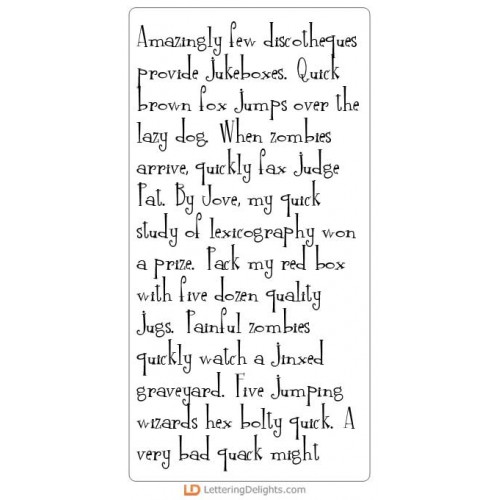 Amazingly few discotheques
provide jukeboxes. Quick
brown fox jumps over the
lazy dog. When zombies
arrive, quickly fax judge
Pat. By Jove, my quick
study of lexicography won
a prize. Pack my red box
with five dozen quality
jugs. Painful zombies
quickly watch a jinxed
graveyard. Five jumping
wizards hex bolty quick. A
very bad quack might
LD LetteringDelights.com